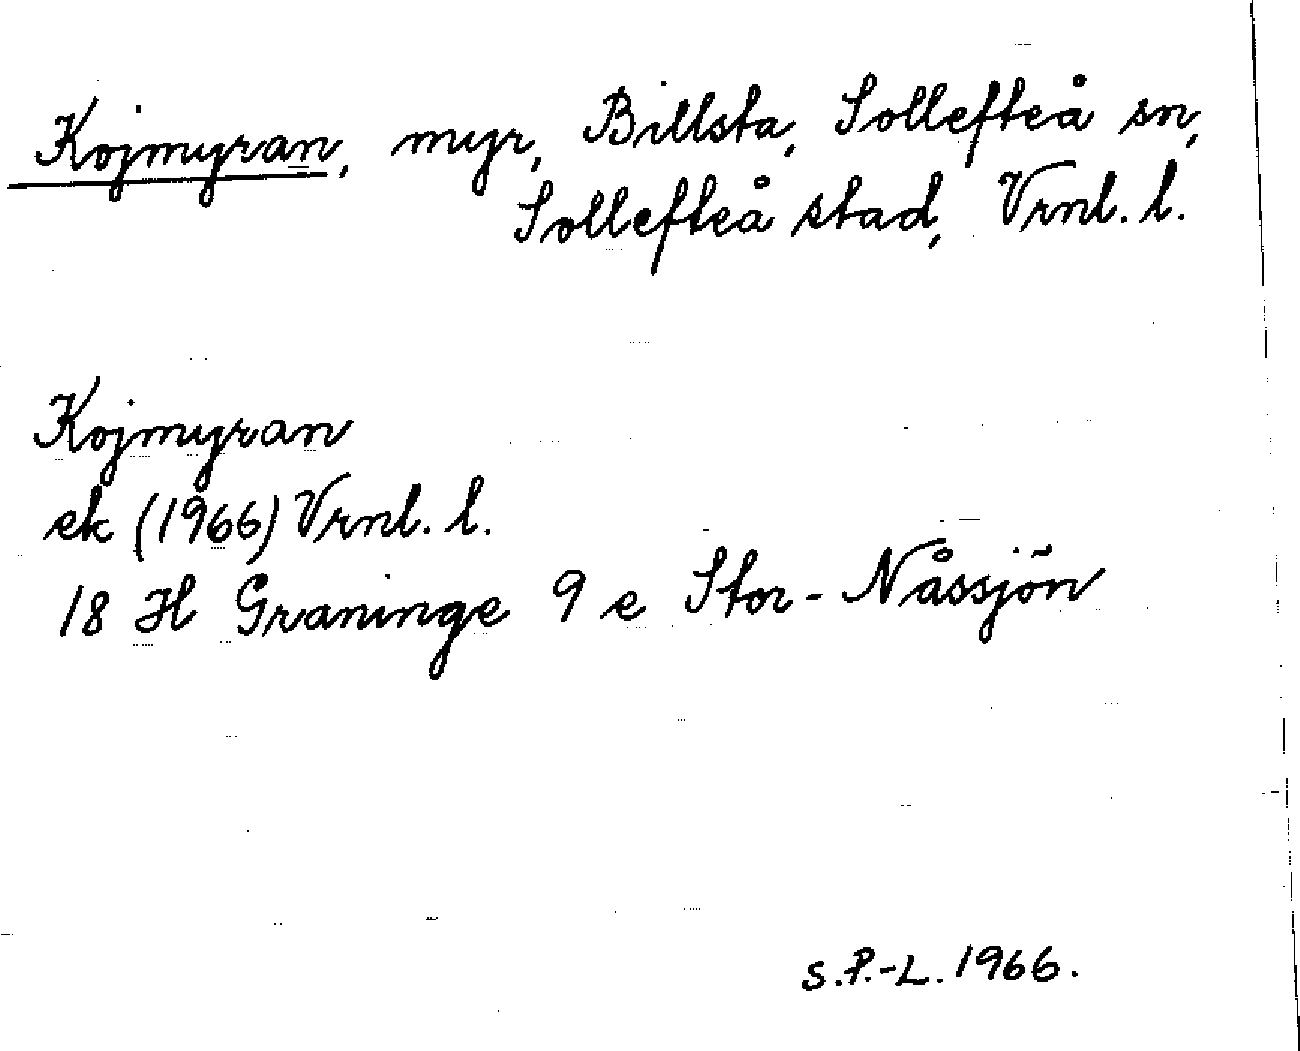 Kojmyran, myr, Billsta, Sollefteå sn,
Sollefteå stad, Vrnl. l.
Kojmyran
ek (1966) Vrnl. l.
18 H Graninge 9 e Stor-Nåssjön
S.P.-L. 1966.